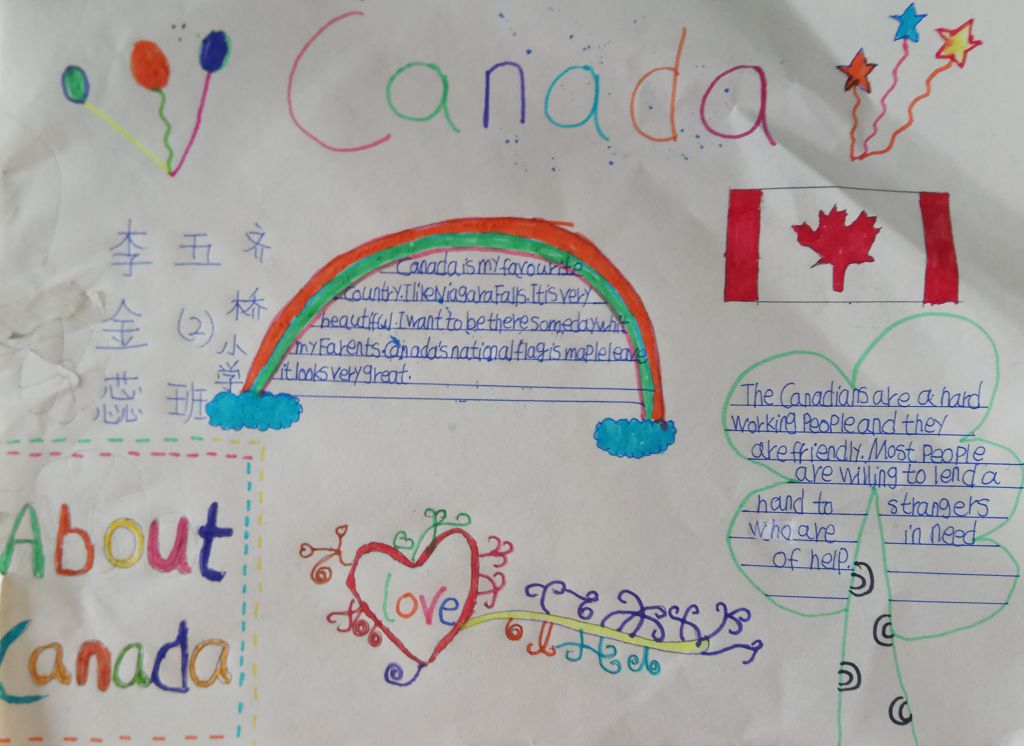 Canada
李金蕊
五(2)班
齐桥小学
Canada is my favourite
Country. I like Niagara Falls. It is very
beautiful. I want to be there someday whit
my Farents. Canada's national flag is maple leave
it looks very great.
The Canadians are a hard
working People and they
are friendly. Most People
are willing to lend a
hand to strangers
who are in need
of help.
About
Canada
love